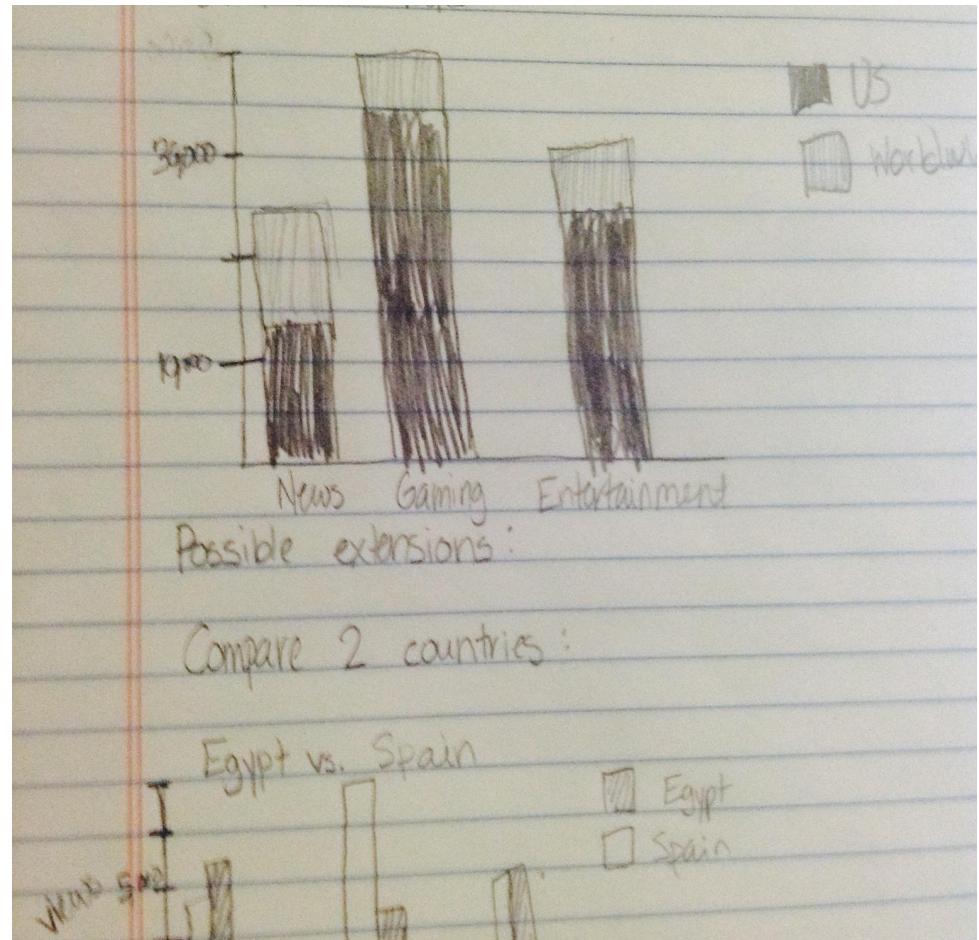 US
30,000
10,000
News Gaming Entertainment
Possible extensions:
Compare 2 countries:
Egypt vs. Spain
Egypt
Spain